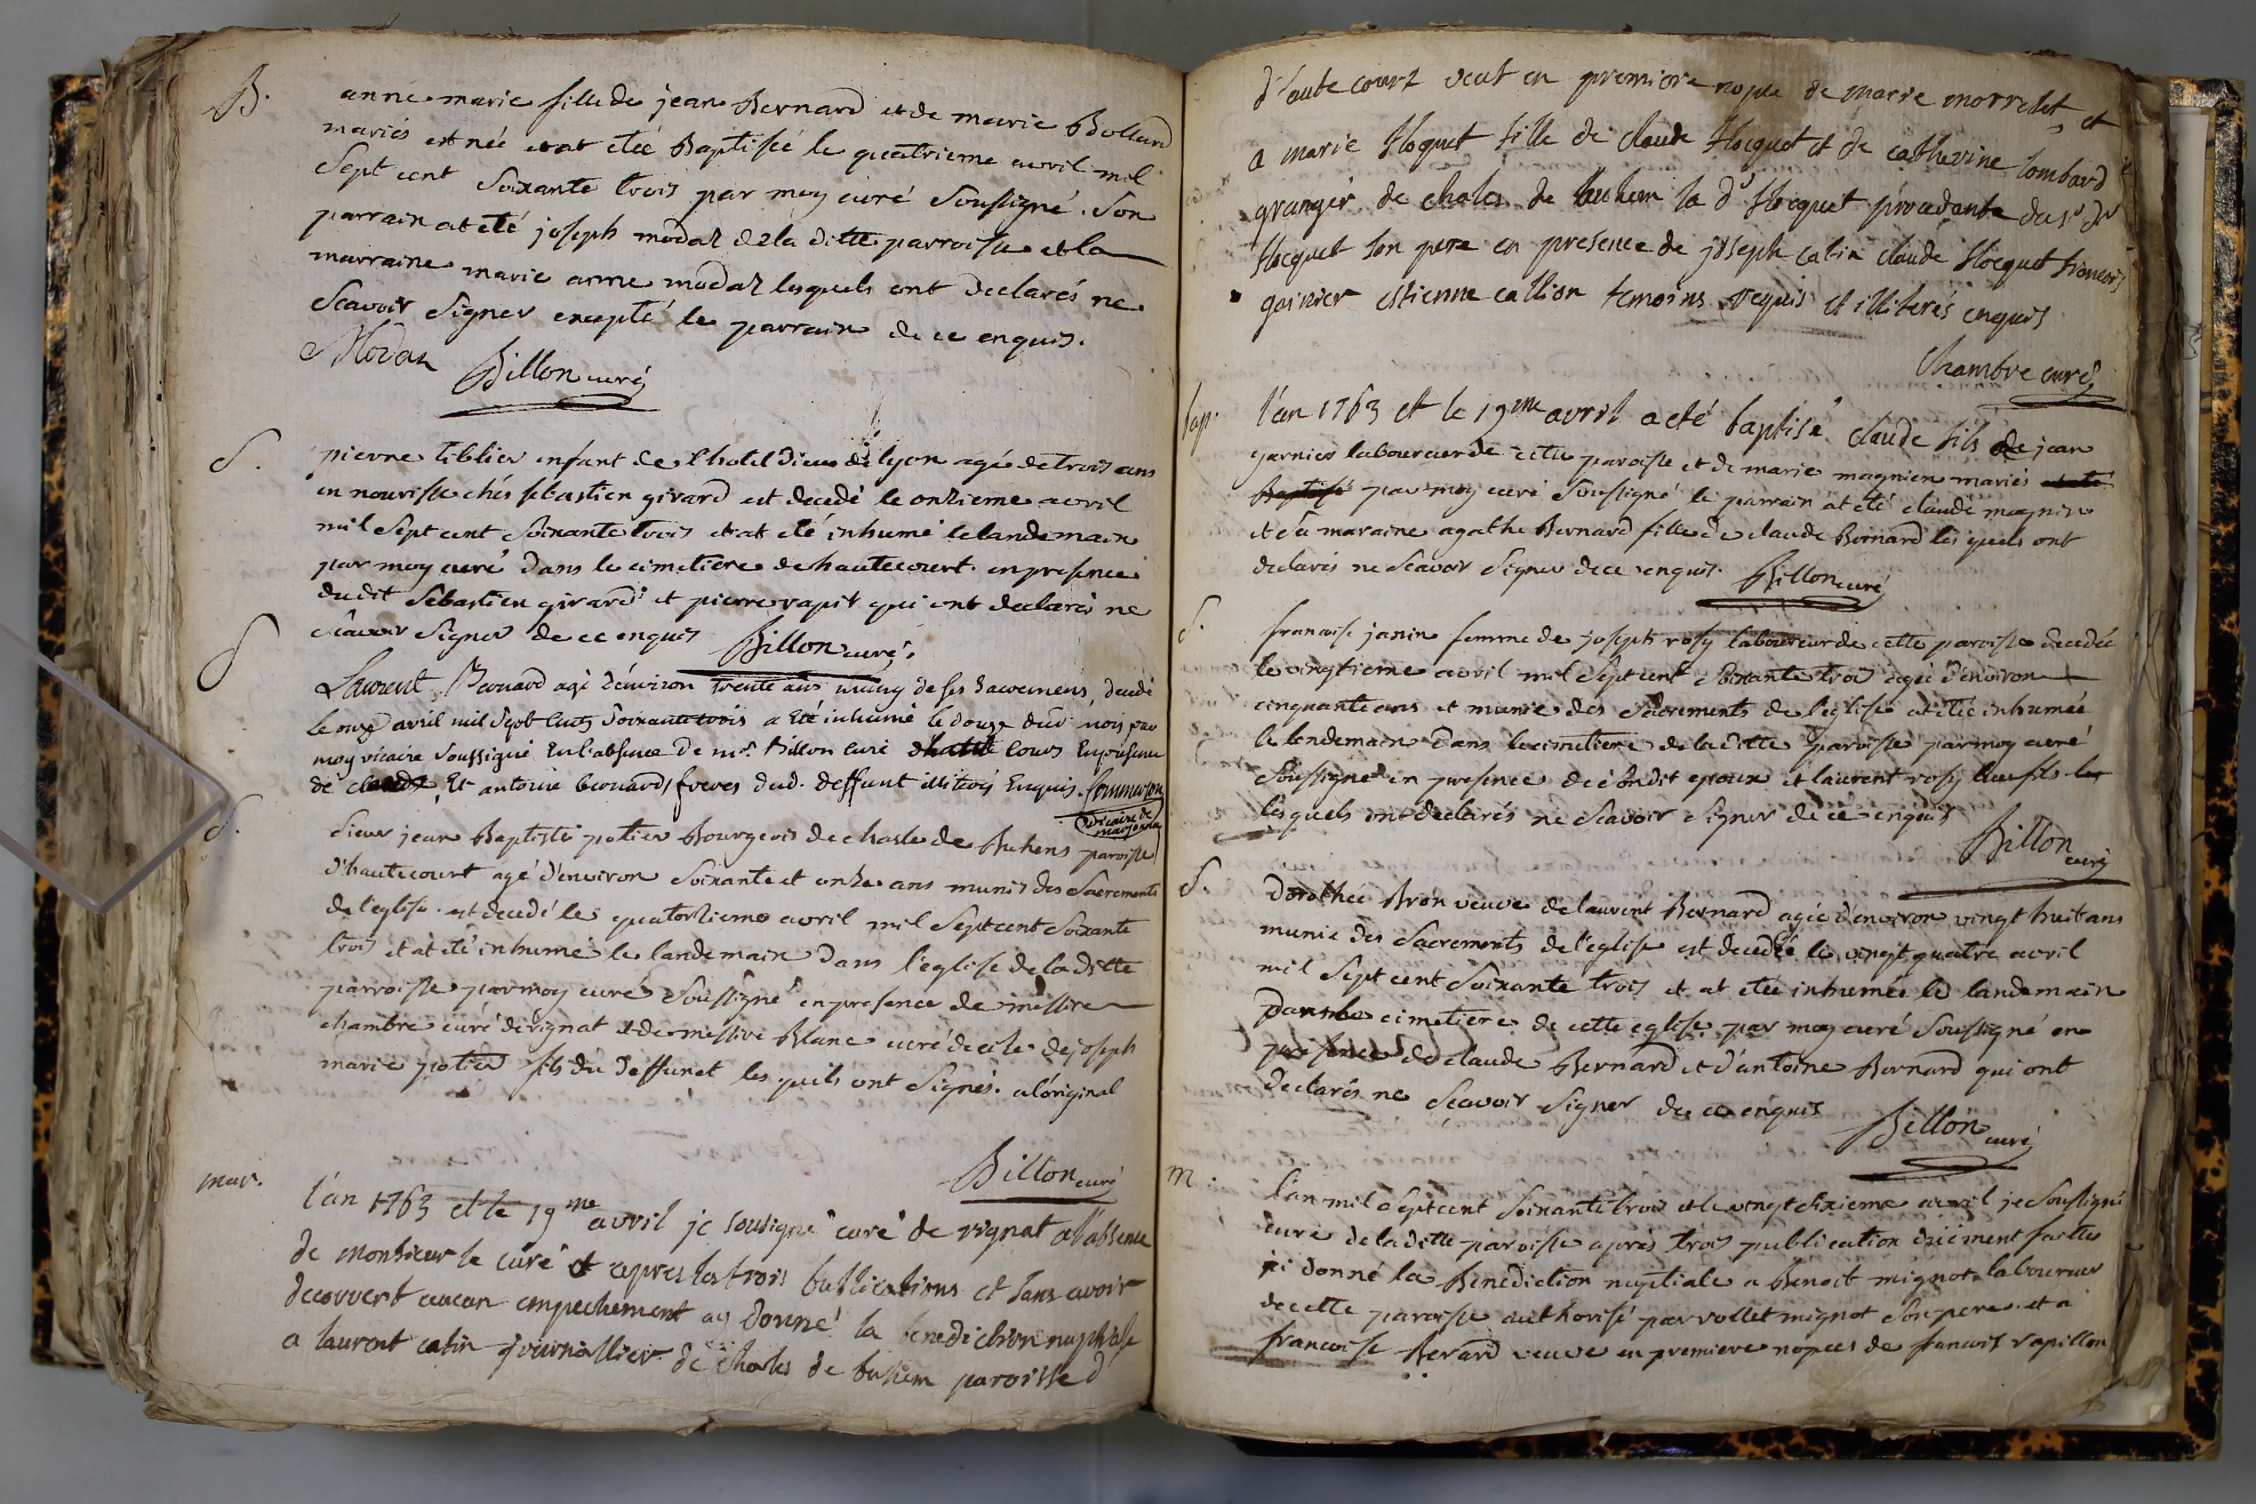 B.
anne marie fille de jean Bernard et de marie Bolland
mariés est née et at etée Baptisée le quatrieme avril mil
Sept cent Soixante trois par moy curé Soussigné. Son
parrain at eté joseph modaz de la ditte parroisse et la
marraine marie anne modaz lesquels ont declarés ne
Scavoir Signer excepté le parrain de ce enquis.
Modaz Billon curé
S.
pierre tiblier enfant de l'hotel dieu de lyon agé de trois ans
en nourisse chés sebastien girard est decedé le onzieme avril
mil Sept cent Soixante trois et at eté inhumé le landemain
par moy curé dans le cimetiere de hautecourt en presence
dudit Sebastien girard et pierre rapit qui ont declarés ne
Scavoir Signer de ce enquis Billon curé.
S
Laurent Bernard agé d'environ trente ans muny de ses Sacremens, decedé
le onze avril mil Sept Cents Soixante trois a Eté inhumé le douze dud. mois par
moy vicaire Soussigné En l'absence de mr. Billon Curé d'haute Court En présence
de claude Et antoine bernard freres dud. deffunt illiterés Enquis. Commerson
vicaire de
marsonnas
S.
Sieur jean Baptiste potier Bourgeois de chasle de Buhens paroisse
d'hautecourt agé d'environ Soixante et onze ans munis des Sacrements
de l'eglise est decedé le quatorzieme avril mil Sept cent Soixante
trois et at eté inhumé le landemain dans l'eglise de la ditte
parroisse par moy curé Soussigné en presence de messire
chambre curé de rignat et de messire Blanc curé de cize de joseph
marie potier fils du deffunct les quels ont Signés. a l'original
Billon curé
mar.
l'an 1763 et le 19me avril je sousigné curé de rignat a l'absence
de monsieur le curé et apres les trois bublications et sans avoir
decouvert aucun empechement ay donné la benediction nuphiale
a laurent catin journallier de chales de buhem paroisse d
d'haute court veut en premiere nopce de marie morrelet, et
a marie Hoquet fille de claude Hocquet et de catherine lombard
granger de chales de buhem la d' Hocquet procedante du sr. dt
Hocquet son pere en presence de joseph catin claude Hocquet francois
goinier estienne callion temoins requis et illiterés enquis
Chambre curé
bap.
l'an 1763 et le 19me avril a eté baptisé claude fils de jean
garnier laboureur de cette paroisse et de marie magnien mariés
par moy curé Soussigné le parrain at eté claude magnin
et sa maraine agathe Bernard fille de claude Bernard les quels ont
declarés ne Scavoir Signer de ce enquis. Billon curé
S.
francoise janin femme de joseph rosy laboureur de cette paroisse decedée
le vingtieme avril mil Sept cent Soixante trois agée d'environ
cinquante ans et munie des Sacrements de l'eglise at etée inhumée
le lendemain dans le cimetiere de la ditte paroisse par moy curé
Soussigné en presence de son dit epoux et laurent rosy
lesquels ont declarés ne Scavoir Signer de ce enquis
Billon curé
S.
Dorothée Bron veuve de laurent Bernard agée d'environ vingt huit ans
munie des Sacrements de l'eglise est decedée le vingt quatre avril
mil Sept cent Soixante trois et at etée inhumée le landemain
dans le cimetiere de cette eglise par moy curé Soussigné en
presence de claude Bernard et d'antoine Bernard qui ont
declarés ne Scavoir Signer de ce enquis
Billon curé
m.
l'an mil Sept cent Soixante trois et le vingt sixieme avril je Soussigné
curé de la ditte paroisse apres trois publication duement faittes
ai donné la Benediction nuptiale a Benoit mignot laboureur
de cette paroisse authorisé par vollet mignot Son pere et a
francoise Berard veuve en premiere nopces de francois rapillon